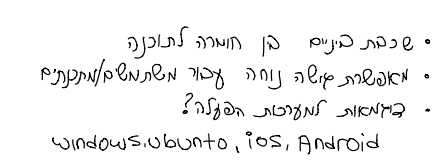 • שכבת ביניים בין חומרה לתוכנה
• מאפשרת גישה נוחה עבור משתמשים/מתכנתים
• דוגמאות למערכות הפעלה?
windows, ubunto, ios, Android